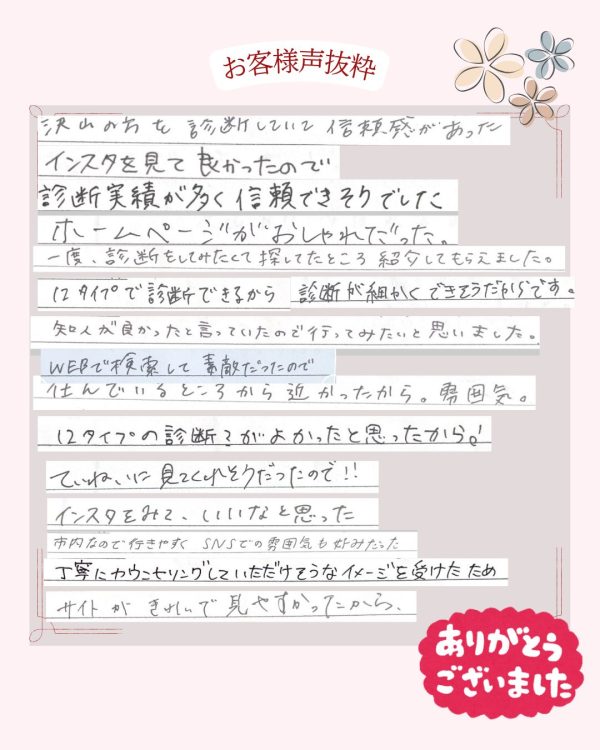 お客様声抜粋
沢山の方を診断していて信頼感があった
インスタを見て良かったので
診断実績が多く信頼できそうでした
ホームページがおしゃれだった。
一度、診断をしてみたくて探してたところ紹介してもらえました。
12タイプで診断できるから
診断が細かくできそうだからです。
知人が良かったと言っていたので行ってみたいと思いました。
WEBで検索して素敵だったので
住んでいるところから近かったから。雰囲気。
12タイプの診断がよかったと思ったから!
ていねいに見てくれそうだったので!!
インスタをみて、いいなと思った
市内なので行きやすくSNSでの雰囲気も好みだった
丁寧にカウンセリングしていただけそうなイメージを受けたため
サイトがきれいで見やすかったから、
ありがとう
ございました